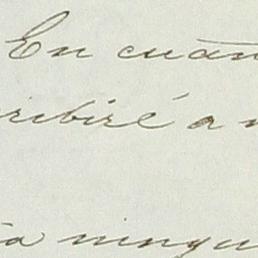 En cuan
ribiré a
ta ningu